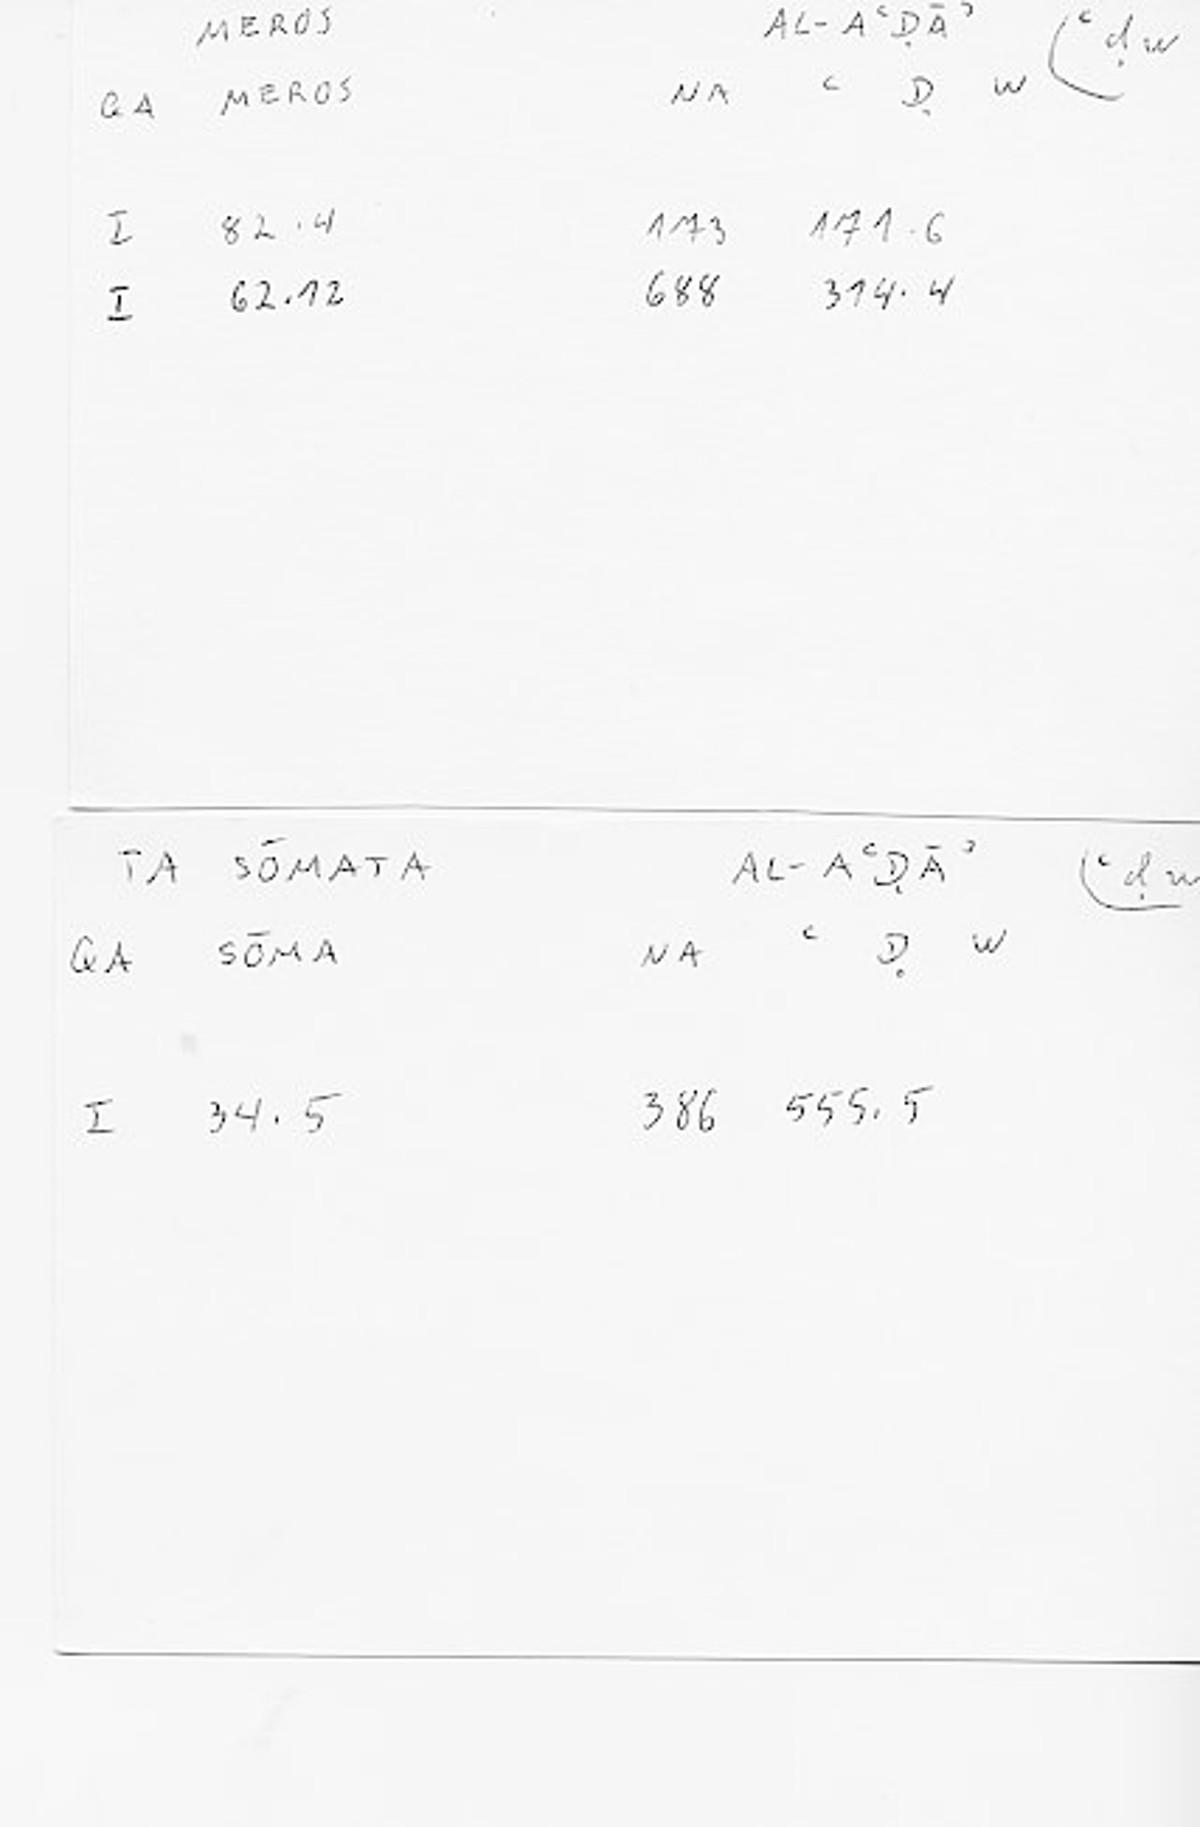 MEROS AL-AʿḌĀʾ (ʿḍw
GA MEROS NA ʿ Ḍ W
I 82.4 173 171.6
I 62.12 688 314.4
TA SŌMATA AL-AʿḌĀʾ (ʿḍw
GA SŌMA NA ʿ Ḍ W
I 34.5 386 555.5